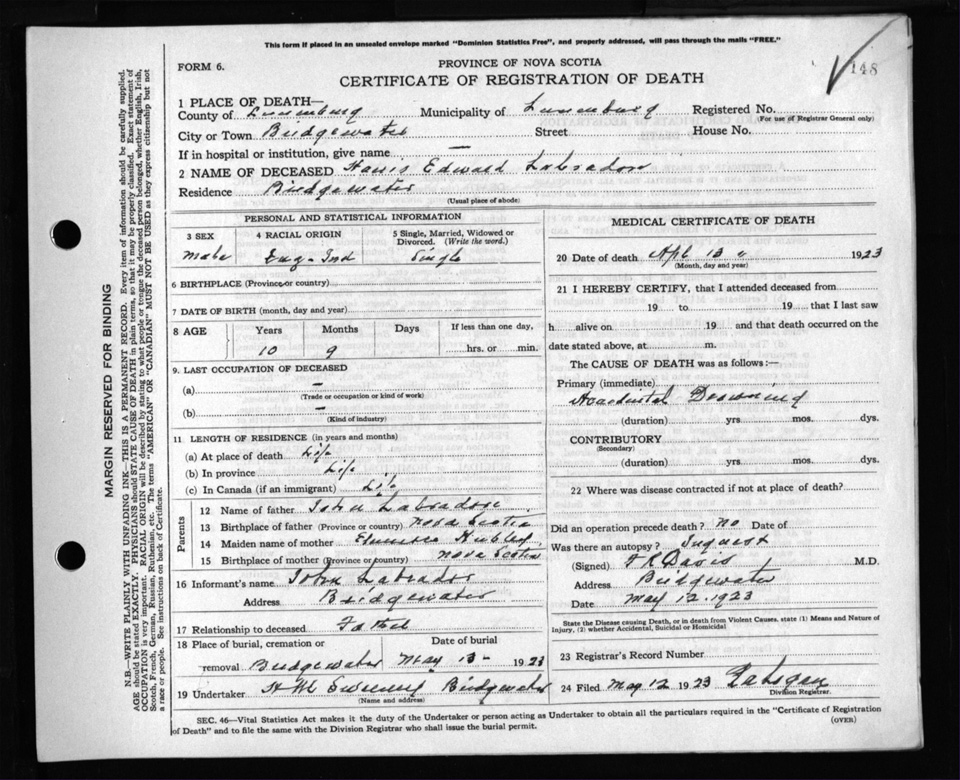 This form if placed in an unsealed envelope marked "Dominion Statistics Free", and properly addressed, will pass through the mails "FREE."
FORM 6.
PROVINCE OF NOVA SCOTIA
CERTIFICATE OF REGISTRATION OF DEATH
148
1 PLACE OF DEATH—
County of Lunenburg Municipality of Lunenburg Registered No.
(For use of Registrar General only)
City or Town Bridgewater Street House No.
If in hospital or institution, give name —
2 NAME OF DECEASED Edward Labrador
Residence Bridgewater
(Usual place of abode)
PERSONAL AND STATISTICAL INFORMATION
3 SEX 4 RACIAL ORIGIN 5 Single, Married, Widowed or Divorced. (Write the word.)
Male Eng-Ind Single
6 BIRTHPLACE (Province or country)
7 DATE OF BIRTH (month, day and year)
8 AGE Years Months Days If less than one day,
10 9 hrs. or min.
9. LAST OCCUPATION OF DECEASED
(a) —
(Trade or occupation or kind of work)
(b) —
(Kind of industry)
11 LENGTH OF RESIDENCE (in years and months)
(a) At place of death Life
(b) In province Life
(c) In Canada (if an immigrant) Life
Parents
12 Name of father John Labrador
13 Birthplace of father (Province or country) Nova Scotia
14 Maiden name of mother
15 Birthplace of mother (Province or country) Nova Scotia
16 Informant's name John Labrador
Address Bridgewater
17 Relationship to deceased Father
18 Place of burial, cremation or removal Bridgewater Date of burial May 13 - 1923
19 Undertaker Bridgewater
(Name and address)
MEDICAL CERTIFICATE OF DEATH
20 Date of death Apl 13 1923
(Month, day and year)
21 I HEREBY CERTIFY, that I attended deceased from
19 to 19 that I last saw
h alive on 19 and that death occurred on the
date stated above, at m.
The CAUSE OF DEATH was as follows:—
Primary (immediate)
Accidental Drowning
(duration) yrs mos. dys.
CONTRIBUTORY
(Secondary)
(duration) yrs mos. dys.
22 Where was disease contracted if not at place of death?
Did an operation precede death? No Date of
Was there an autopsy? Inquest
(Signed) Davis M.D.
Address Bridgewater
Date May 12. 1923
State the Disease causing Death, or in death from Violent Causes, state (1) Means and Nature of
Injury, (2) whether Accidental, Suicidal or Homicidal
23 Registrar's Record Number
24 Filed May 12 1923
Division Registrar.
SEC. 46—Vital Statistics Act makes it the duty of the Undertaker or person acting as Undertaker to obtain all the particulars required in the "Certificate of Registration
of Death" and to file the same with the Division Registrar who shall issue the burial permit.
(OVER)
MARGIN RESERVED FOR BINDING
N.B.—WRITE PLAINLY WITH UNFADING INK—THIS IS A PERMANENT RECORD. Every item of information should be carefully supplied.
AGE should be stated EXACTLY. PHYSICIANS should STATE CAUSE OF DEATH in plain terms, so that it may be properly classified. Exact statement of
OCCUPATION is very important. RACIAL ORIGIN will be described by stating to what people or tongue the deceased person belonged, whether English, Irish,
Scotch, French, German, Russian, Ruthenian, etc. The terms "AMERICAN" OR "CANADIAN" MUST NOT BE USED as they express citizenship but not
a race or people. See instructions on back of Certificate.